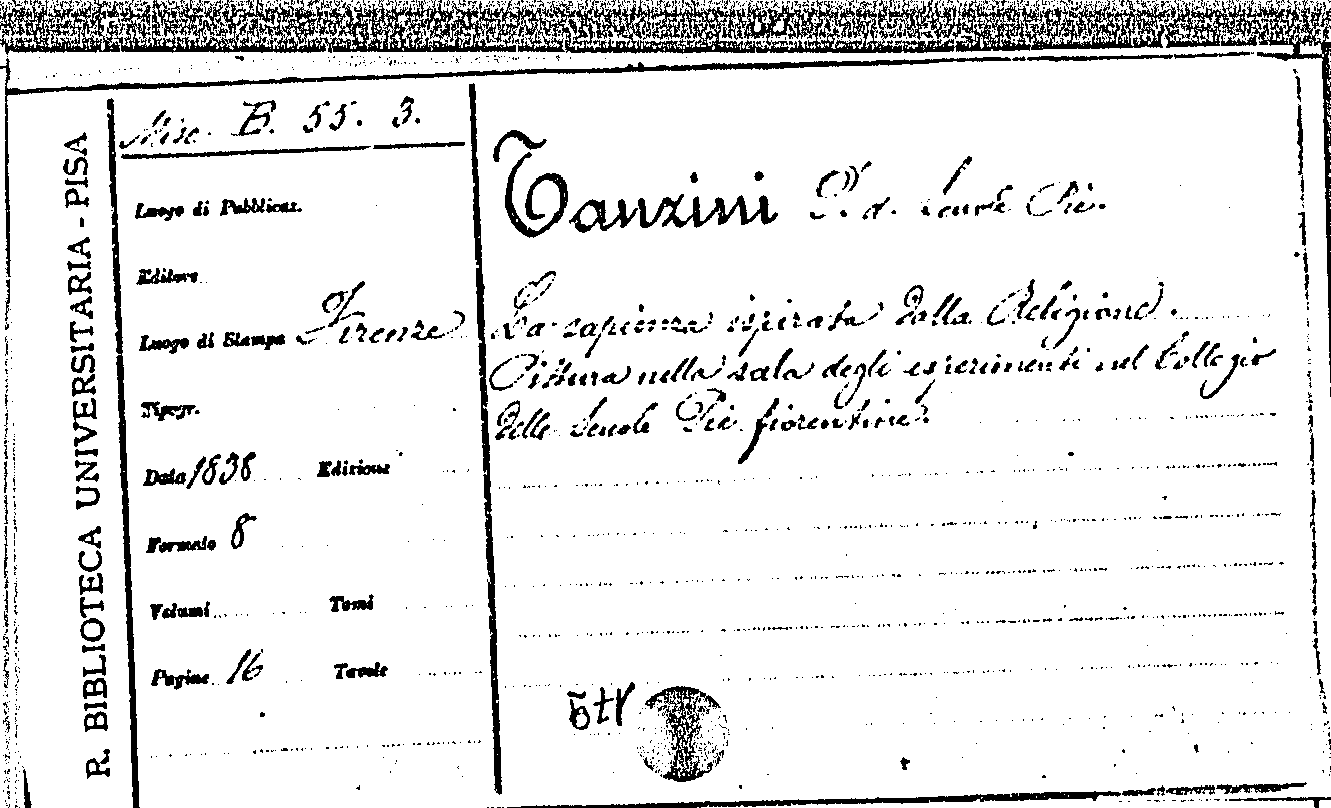 R. BIBLIOTECA UNIVERSITARIA - PISA
Misc. B. 55. 3.
Luogo di Pubblicaz.
Editore
Luogo di Stampa Firenze
Tipogr.
Data 1838 Edizione
Formato 8
Volumi Tomi
Pagine 16 Tavole
Tanzini P. d. Scuole Pie.
La sapienza ispirata dalla Religione.
Pittura nella sala degli esperimenti nel Collegio
delle Scuole Pie fiorentine.